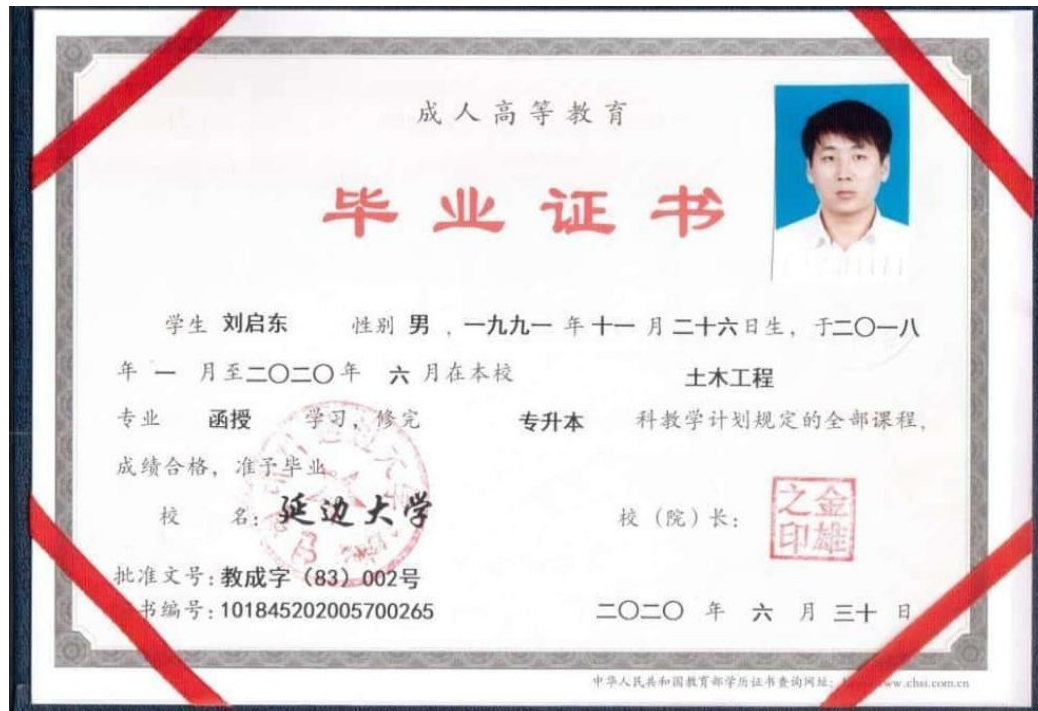 成人高等教育
毕业证书
学生 刘启东 性别 男 ，一九九一 年 十一 月 二十六 日生，于二〇一八
年 一 月至二〇二〇年 六 月在本校 土木工程
专业 函授 学习，修完 专升本 科教学计划规定的全部课程，
成绩合格，准予毕业
校 名：延边大学 校（院）长： 金雄之印
批准文号：教成字（83）002号
书编号：101845202005700265 二〇二〇 年 六 月 三十 日
中华人民共和国教育部学历证书查询网址： www.chsi.com.cn